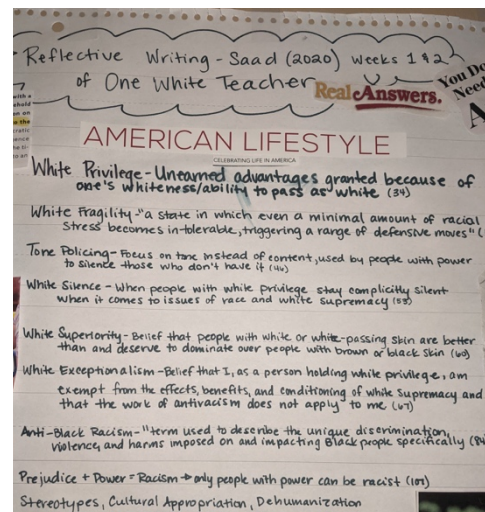 Reflective Writing - Saad (2020) Weeks 1 & 2
of One White Teacher
Real Answers.
You Do
Need
AMERICAN LIFESTYLE
CELEBRATING LIFE IN AMERICA
White Privilege - Unearned advantages granted because of
one's whiteness/ability to pass as white (34)
White Fragility - "a state in which even a minimal amount of racial
stress becomes in-tolerable, triggering a range of defensive moves" (
Tone Policing - Focus on tone instead of content, used by people with power
to silence those who don't have it (46)
White Silence - When people with white privilege stay complicitly silent
when it comes to issues of race and white supremacy (53)
White Superiority - Belief that people with white or white-passing skin are better
than and deserve to dominate over people with brown or black skin (60)
White Exceptionalism - Belief that I, as a person holding white privilege, am
exempt from the effects, benefits, and conditioning of white supremacy and
that the work of antiracism does not apply to me (67)
Anti-Black Racism - "term used to describe the unique discrimination,
violence, and harms imposed on and impacting Black people specifically (84
Prejudice + Power = Racism → only people with power can be racist
Stereotypes, Cultural Appropriation, Dehumanization